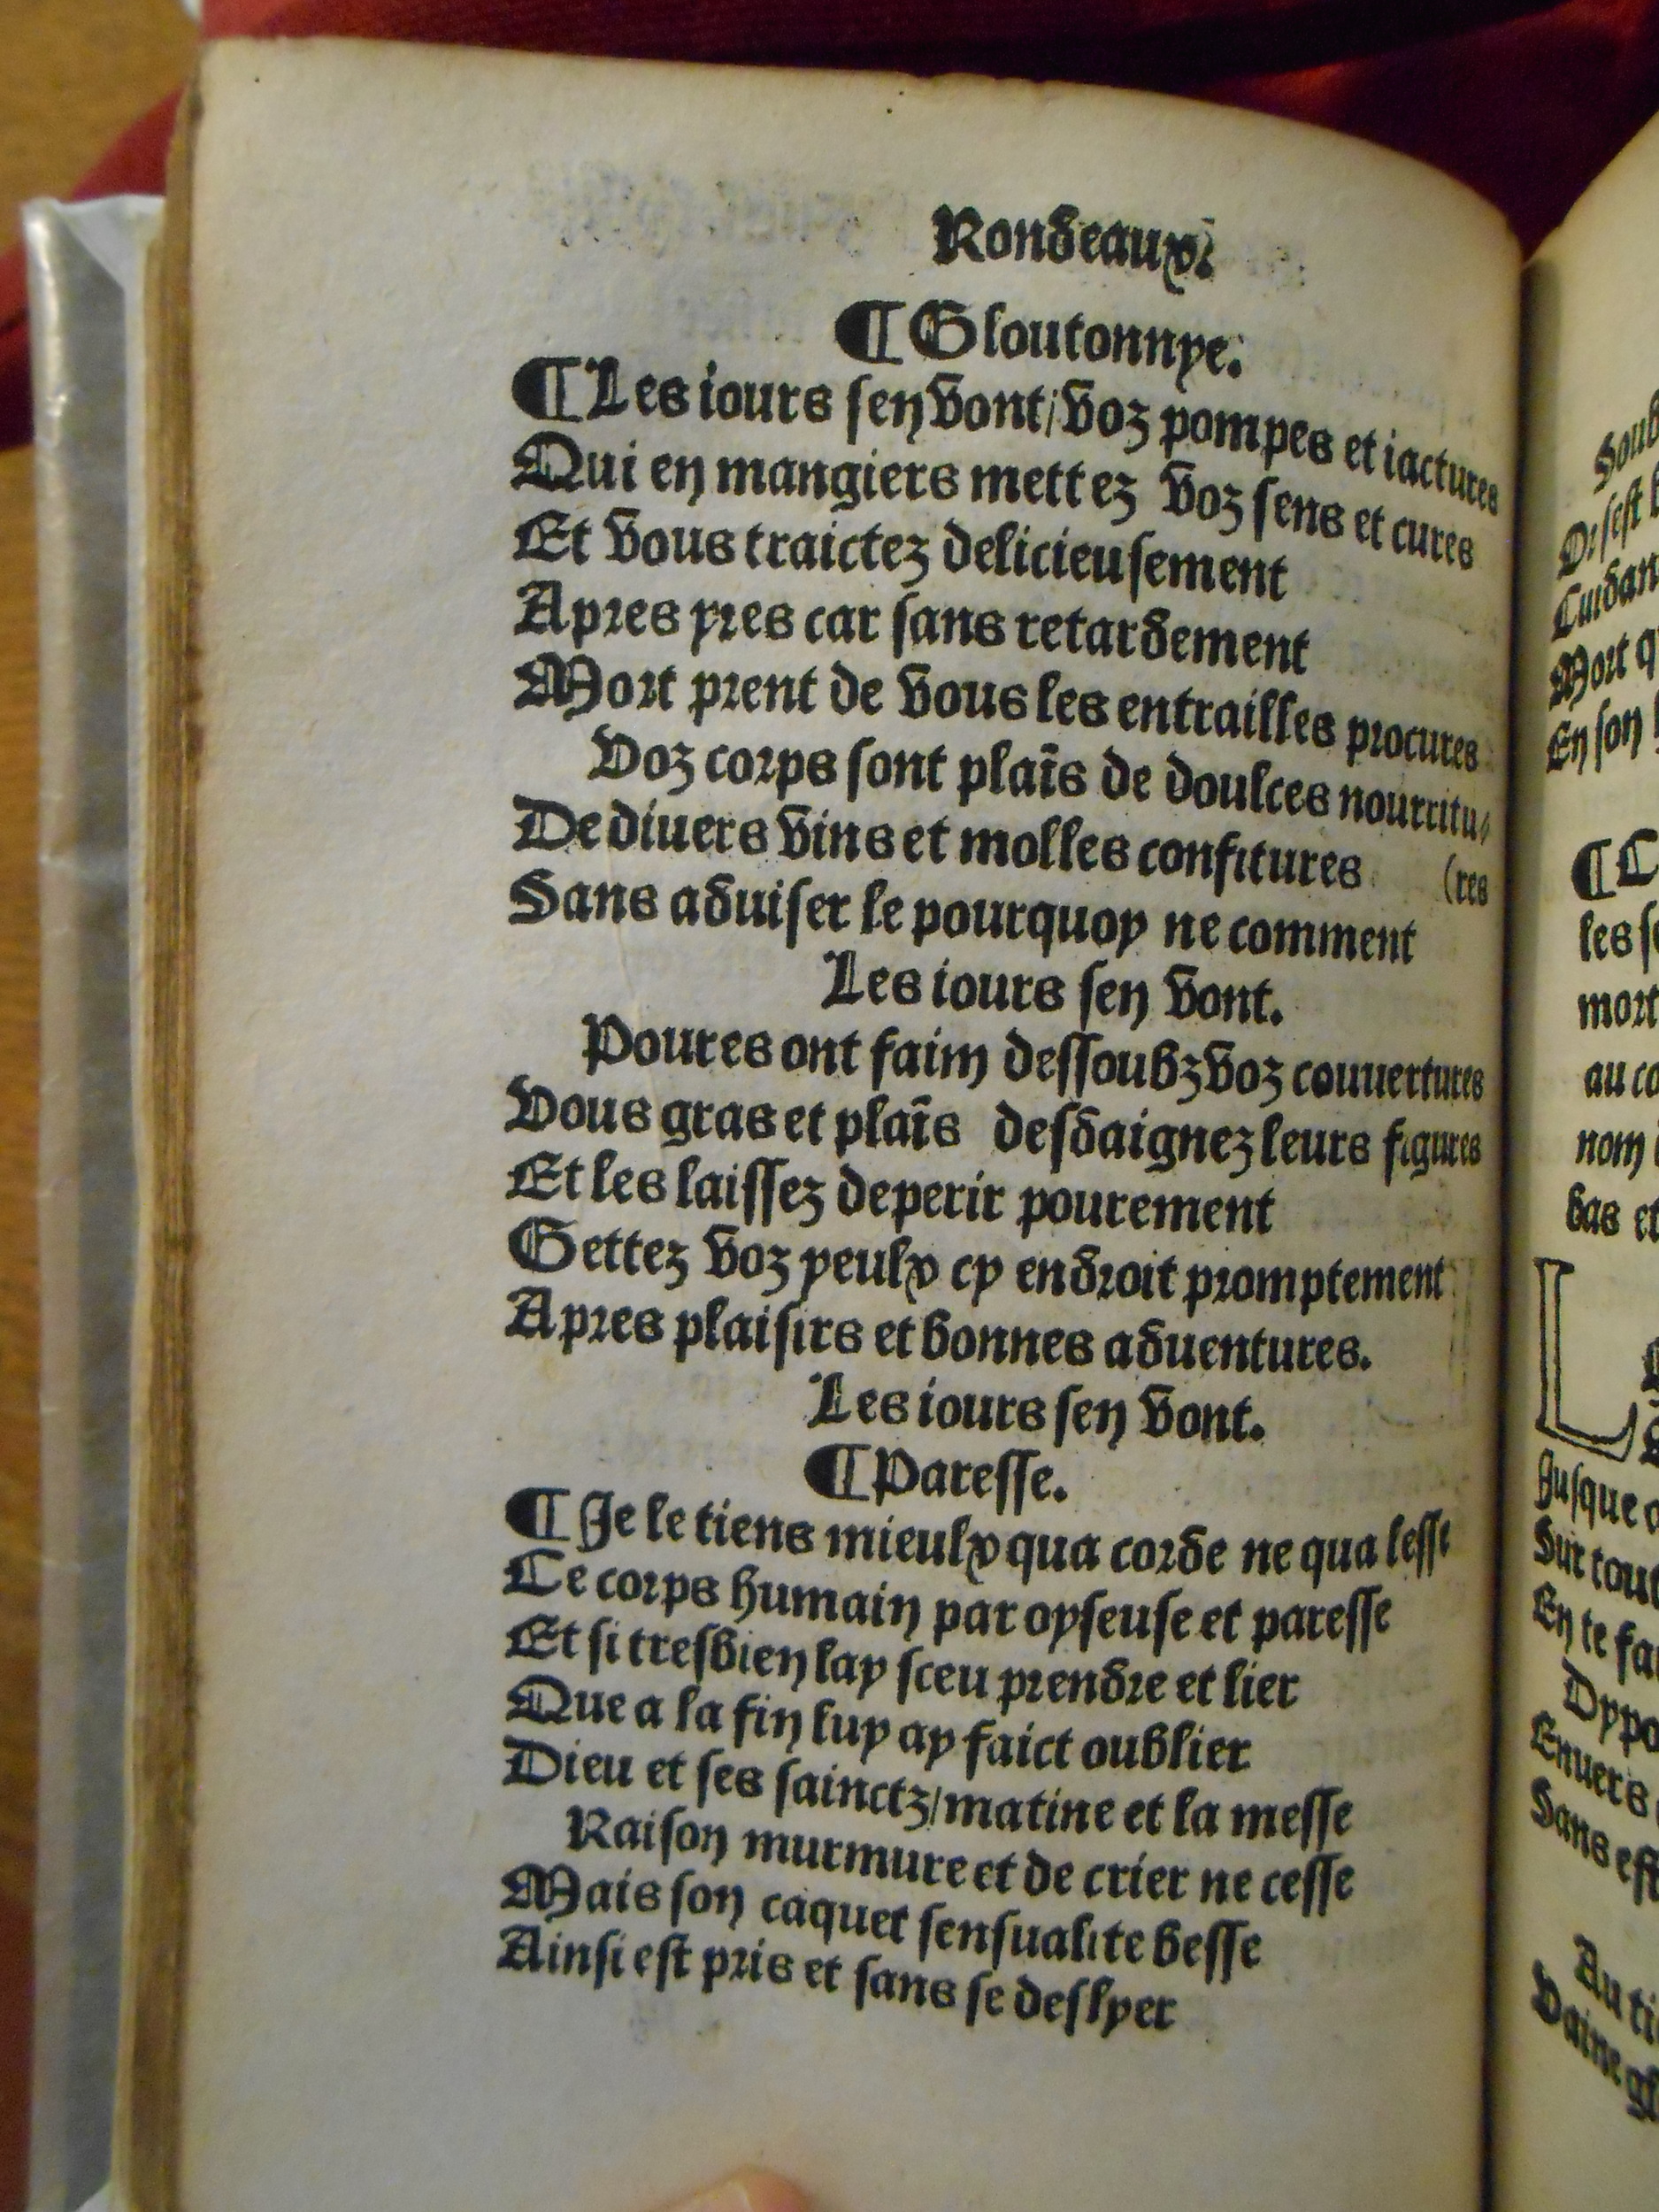 Rondeaux.
¶ Gloutonnye.
¶ Les iours sen vont/ voz pompes et iactures
Qui en mangiers mettez voz sens et cures
Et vous traictez delicieusement
Apres yres car sans retardement
Mort prent de vous les entrailles procures
Voz corps sont plaīs de doulces nourritu/
De diuers vins et molles confitures (res
Sans aduiser le pourquoy ne comment
Les iours sen vont.
Poures ont faim dessoubz voz couuertures
Vous gras et plaīs desdaignez leurs figures
Et les laissez deperir pourement
Gettez voz yeulx cy endroit promptement
Apres plaisirs et bonnes aduentures.
Les iours sen vont.
¶ Paresse.
¶ Je le tiens mieulx qua corde ne qua lesse
Ce corps humain par oyseuse et paresse
Et si tresbien lay sceu prendre et lier
Que a la fin luy ay faict oublier
Dieu et ses sainctz/ matine et la messe
Raison murmure et de crier ne cesse
Mais son caquet sensualite besse
Ainsi est pris et sans se deslyer
les
mort
au
nom
bas et
Jusque
Sur
En te
Enuers
Sans
Mort
En son
Au
Vaine